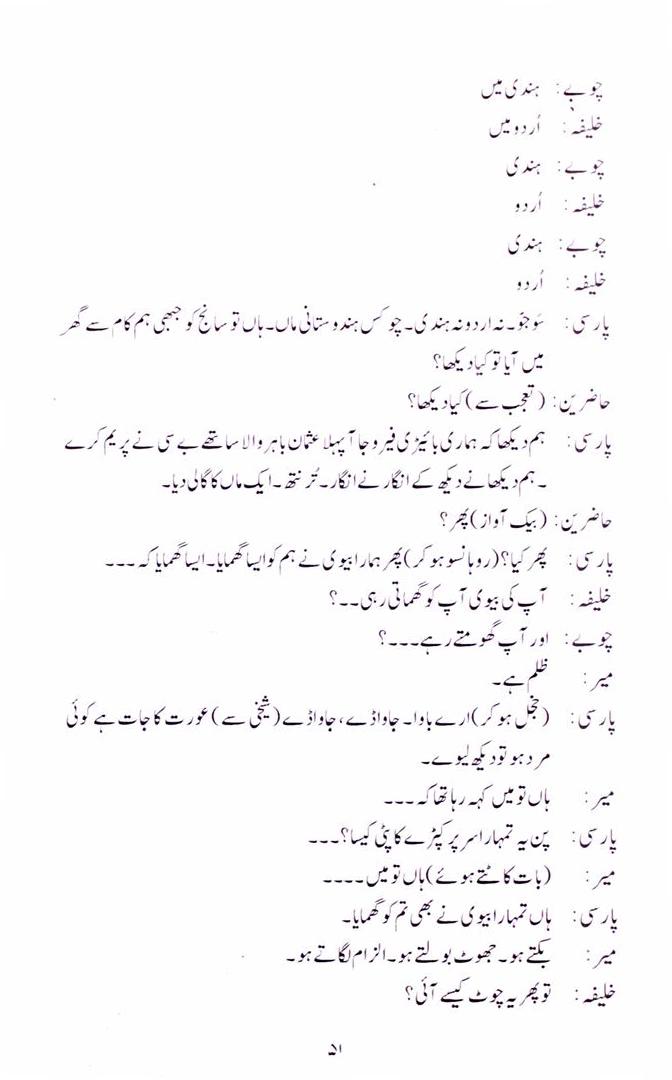 چوبے: ہندی میں
خلیفہ: اُردو میں
چوبے: ہندی
خلیفہ: اُردو
چوبے: ہندی
خلیفہ: اُردو
پارسی: سَوجَو۔ نہ اردو نہ ہندی۔ چوکس ہندوستانی ماں۔ ہاں تو سانج کو جبھی ہم کام سے گھر
میں آیا تو کیا دیکھا؟
حاضرین: (تعجب سے) کیا دیکھا؟
پارسی: ہم دیکھا کہ ہماری بائیڑی فیروجا آ پہلا عثمان باہر والا ساتھے بے سی نے پریم کرے
۔ ہم دیکھا نے دیکھ کے انگار نے انگار۔ تُرنتھ۔ ایک ماں کا گالی دیا۔
حاضرین: (بیک آواز) پھر؟
پارسی: پھر کیا؟ (روہانسو ہو کر) پھر ہمارا بیوی نے ہم کو ایسا گھمایا۔ ایسا گھمایا کہ ۔۔۔
خلیفہ: آپ کی بیوی آپ کو گھماتی رہی۔۔؟
چوبے: اور آپ گھومتے رہے۔۔۔؟
میر: ظلم ہے۔
پارسی: (خجل ہو کر) ارے باوا۔ جاواڈے، جاواڈے (شیخی سے) عورت کا جات ہے کوئی
مرد ہو تو دیکھ لیوے۔
میر: ہاں تو میں کہہ رہا تھا کہ ۔۔۔
پارسی: پن یہ تمہارا سر پر کپڑے کا پٹی کیسا؟۔۔۔
میر: (بات کاٹتے ہوئے) ہاں تو میں۔۔۔۔
پارسی: ہاں تمہارا بیوی نے بھی تم کو گھمایا۔
میر: بکتے ہو۔ جھوٹ بولتے ہو۔ الزام لگاتے ہو۔
خلیفہ: تو پھر یہ چوٹ کیسے آئی؟
۵۱